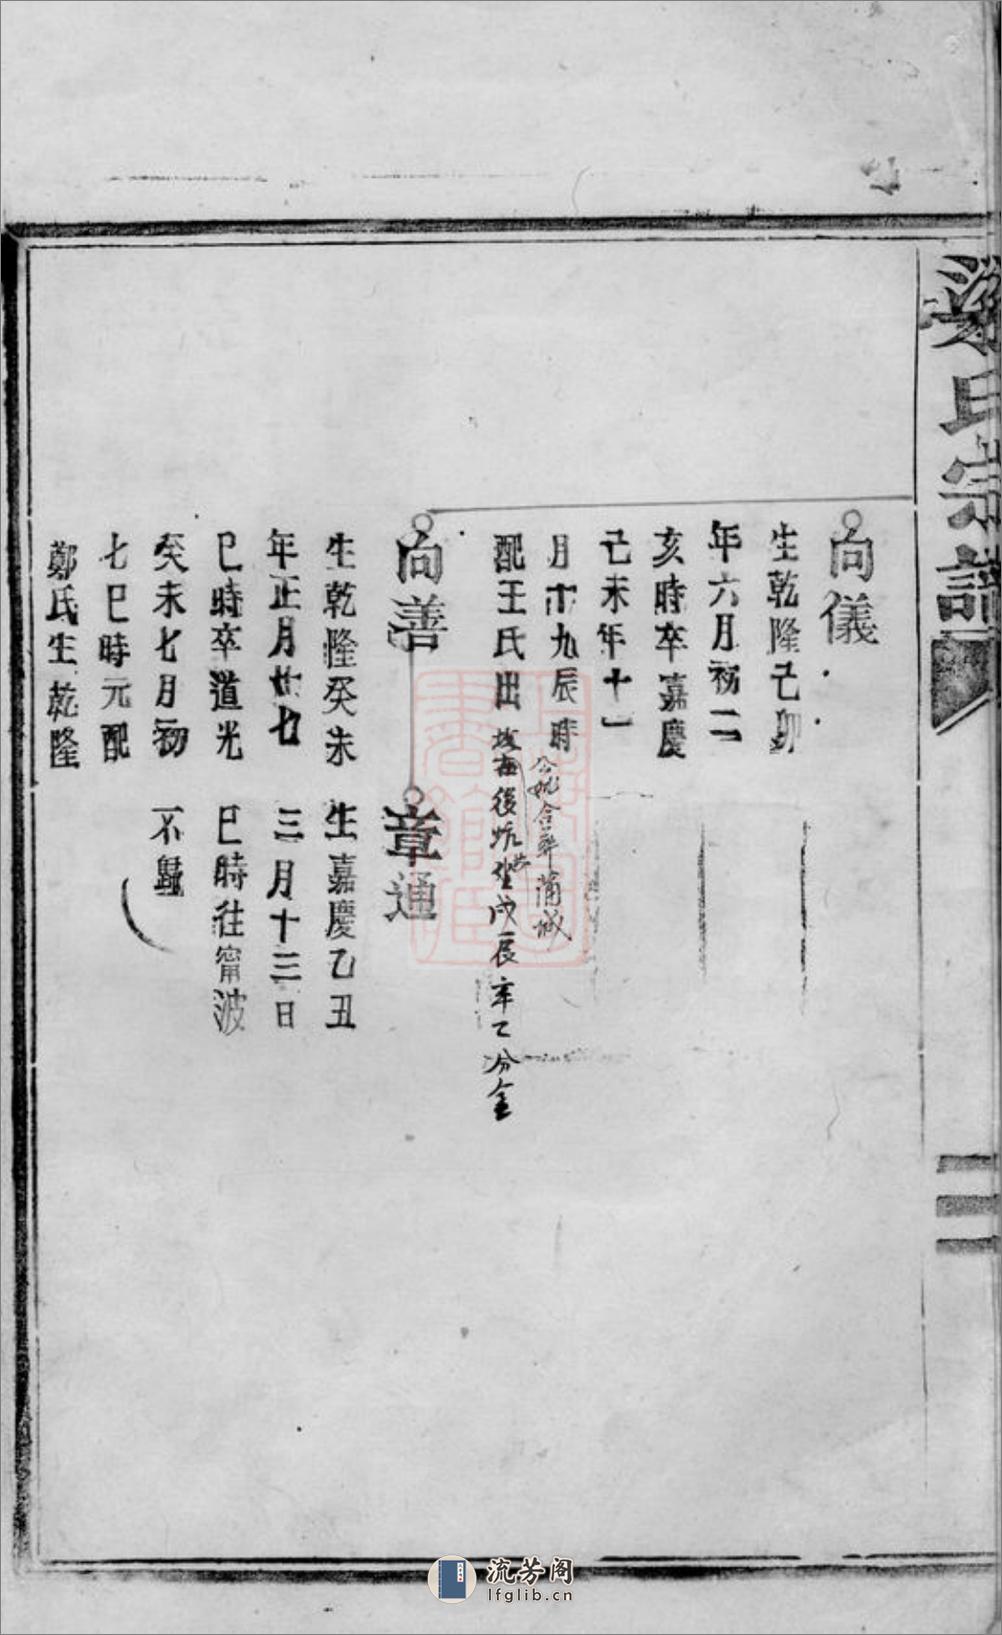 梁氏宗譜
向儀
生乾隆己卯
年六月初二
亥時卒嘉慶
己未年十一
月十九辰時
公妣合葬蒲城
配王氏出
後坑
戌辰辛乙分金
向善
生乾隆癸未
年正月廿七
巳時卒道光
癸未七月初
七巳時元配
鄭氏生乾隆
章通
生嘉慶乙丑
三月十三日
巳時往甯波
不歸
流芳阁
lfglib.cn